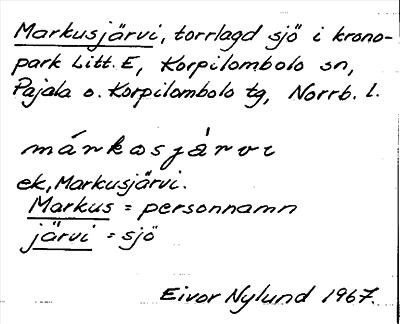 Markusjärvi, torrlagd sjö i krono-
park Litt. E, Korpilombolo sn,
Pajala o. Korpilombolo tg, Norrb. l.
márkosjàrvi
ek, Markusjärvi.
Markus = personnamn
järvi = sjö
Eivor Nylund 1967.